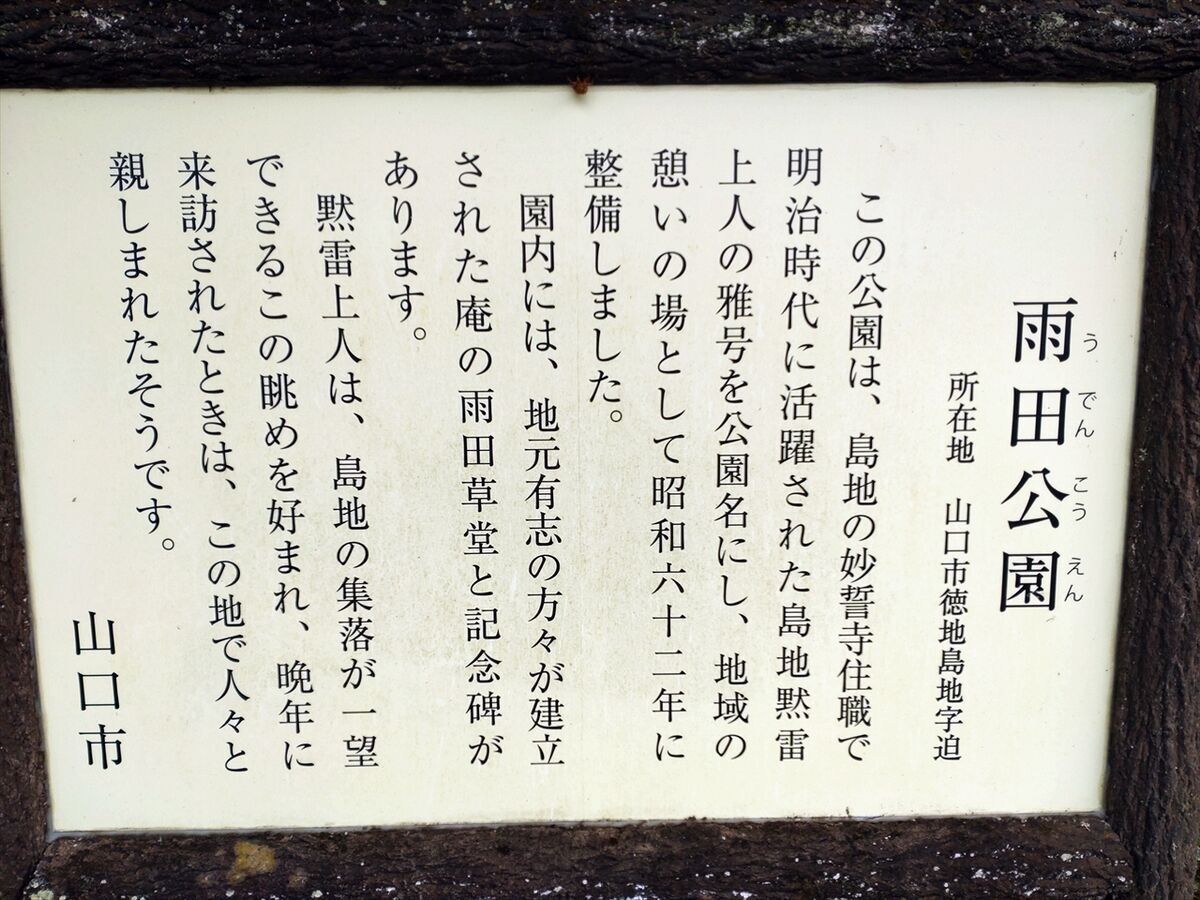 雨田公園
うでんこうえん
所在地　山口市徳地島地字迫
この公園は、島地の妙誓寺住職で
明治時代に活躍された島地黙雷
上人の雅号を公園名にし、地域の
憩いの場として昭和六十二年に
整備しました。
園内には、地元有志の方々が建立
された庵の雨田草堂と記念碑が
あります。
黙雷上人は、島地の集落が一望
できるこの眺めを好まれ、晩年に
来訪されたときは、この地で人々と
親しまれたそうです。
山口市